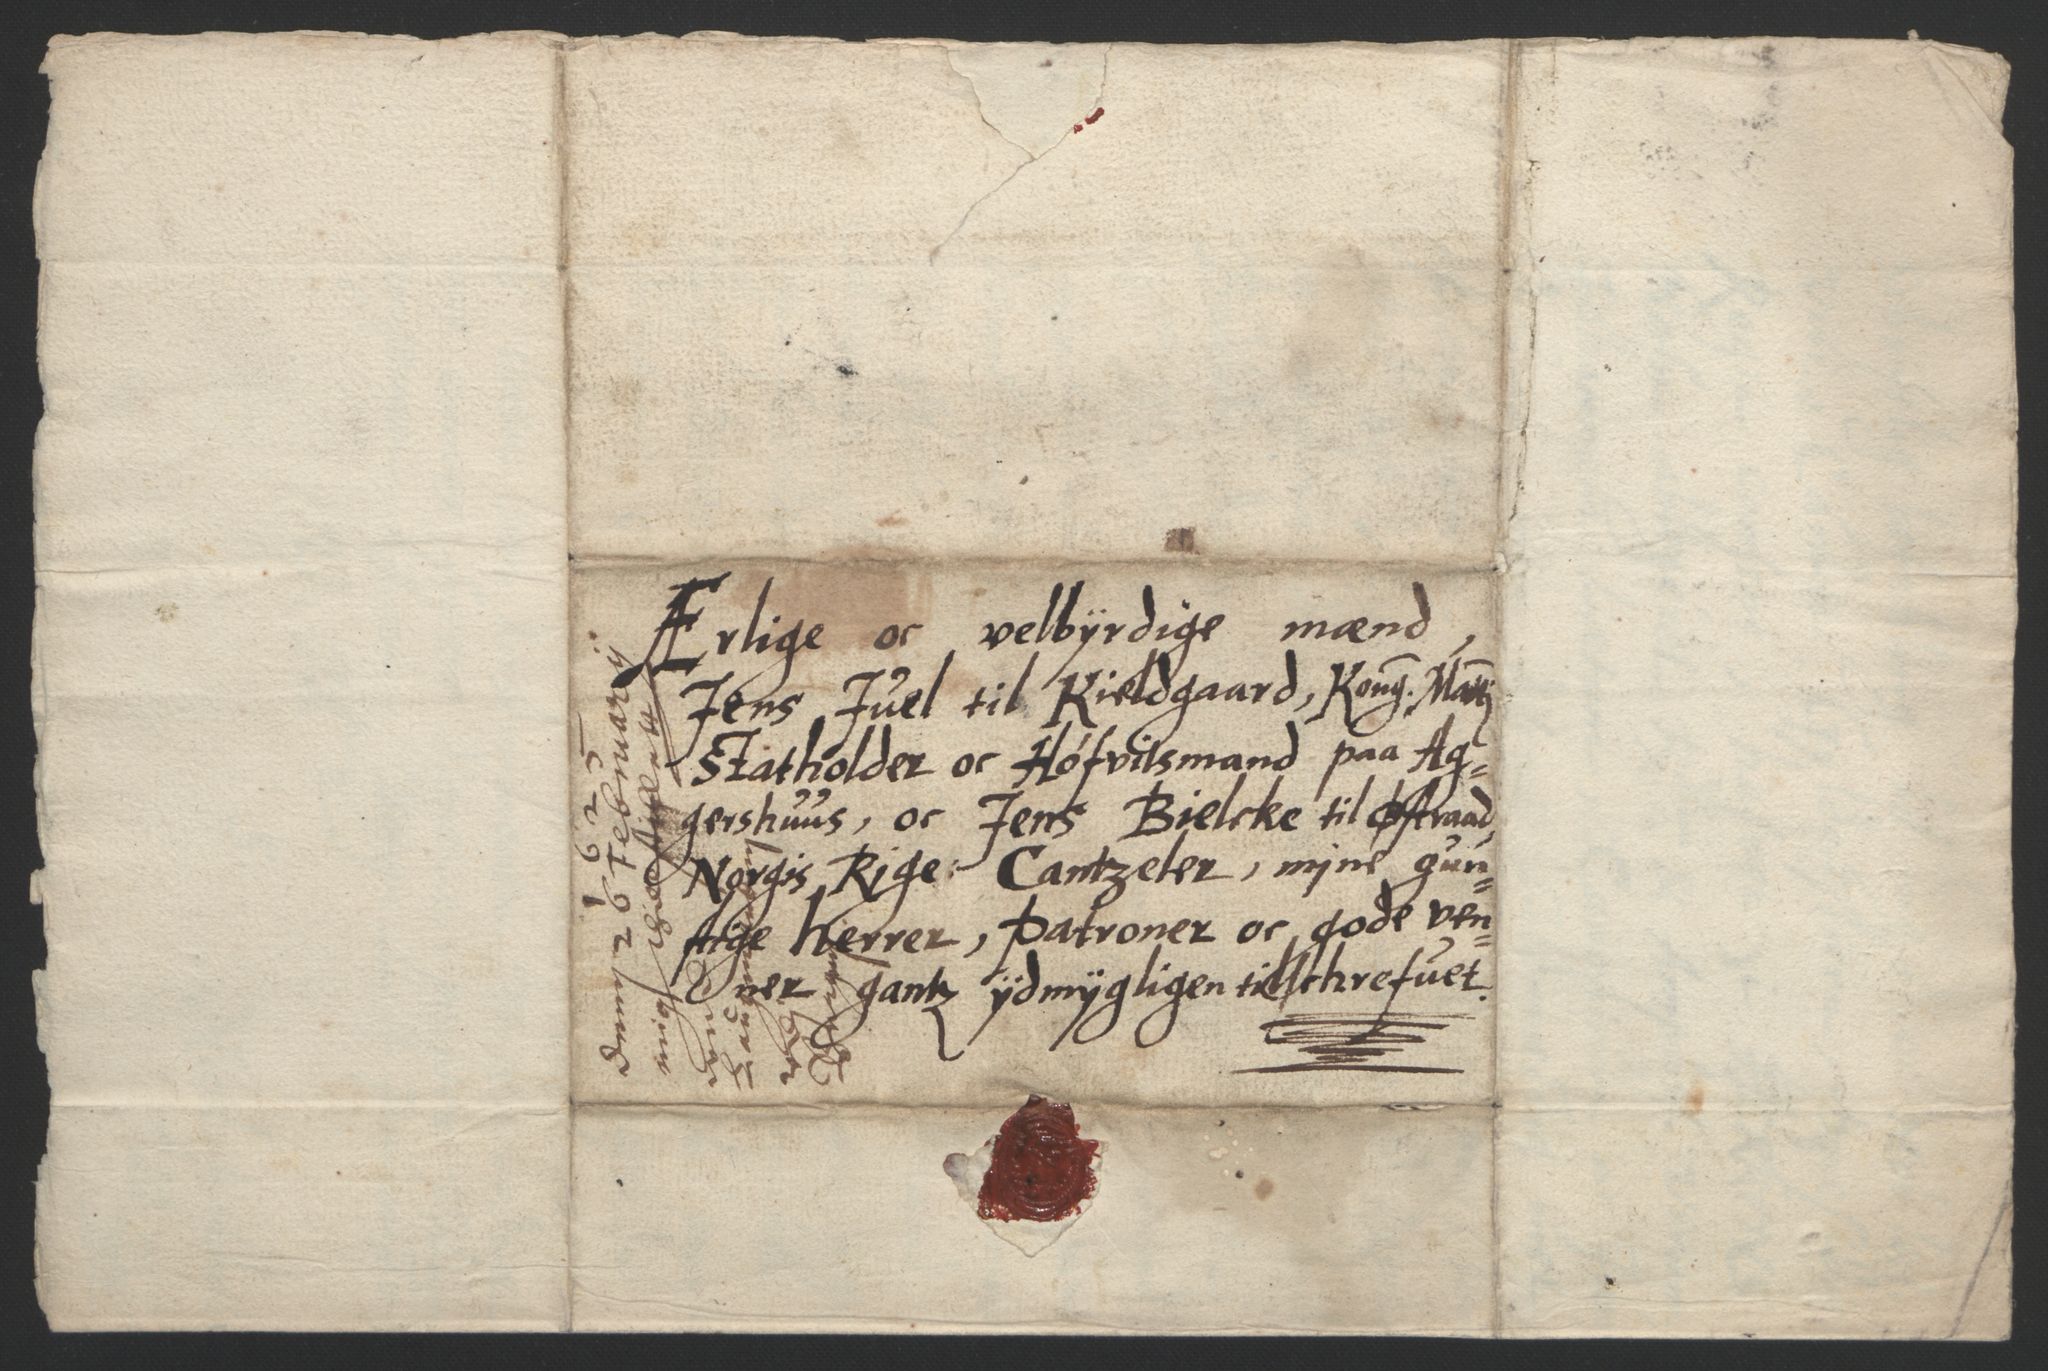 Ærlige oc velbÿrdige mænd,
Jens Juel til Kieldgaard, Kong. Maÿ
Statholder oc Höfvitsmand paa Ag=
gershuus, oc Jens Bielcke til Østraad,
Norgis Rige Cantzeler, mine gun=
stige herrer, patroner oc gode ven=
ner gantz ÿdmÿgligen tilschrefuet.
1625
denn 26 Februarÿ
mig